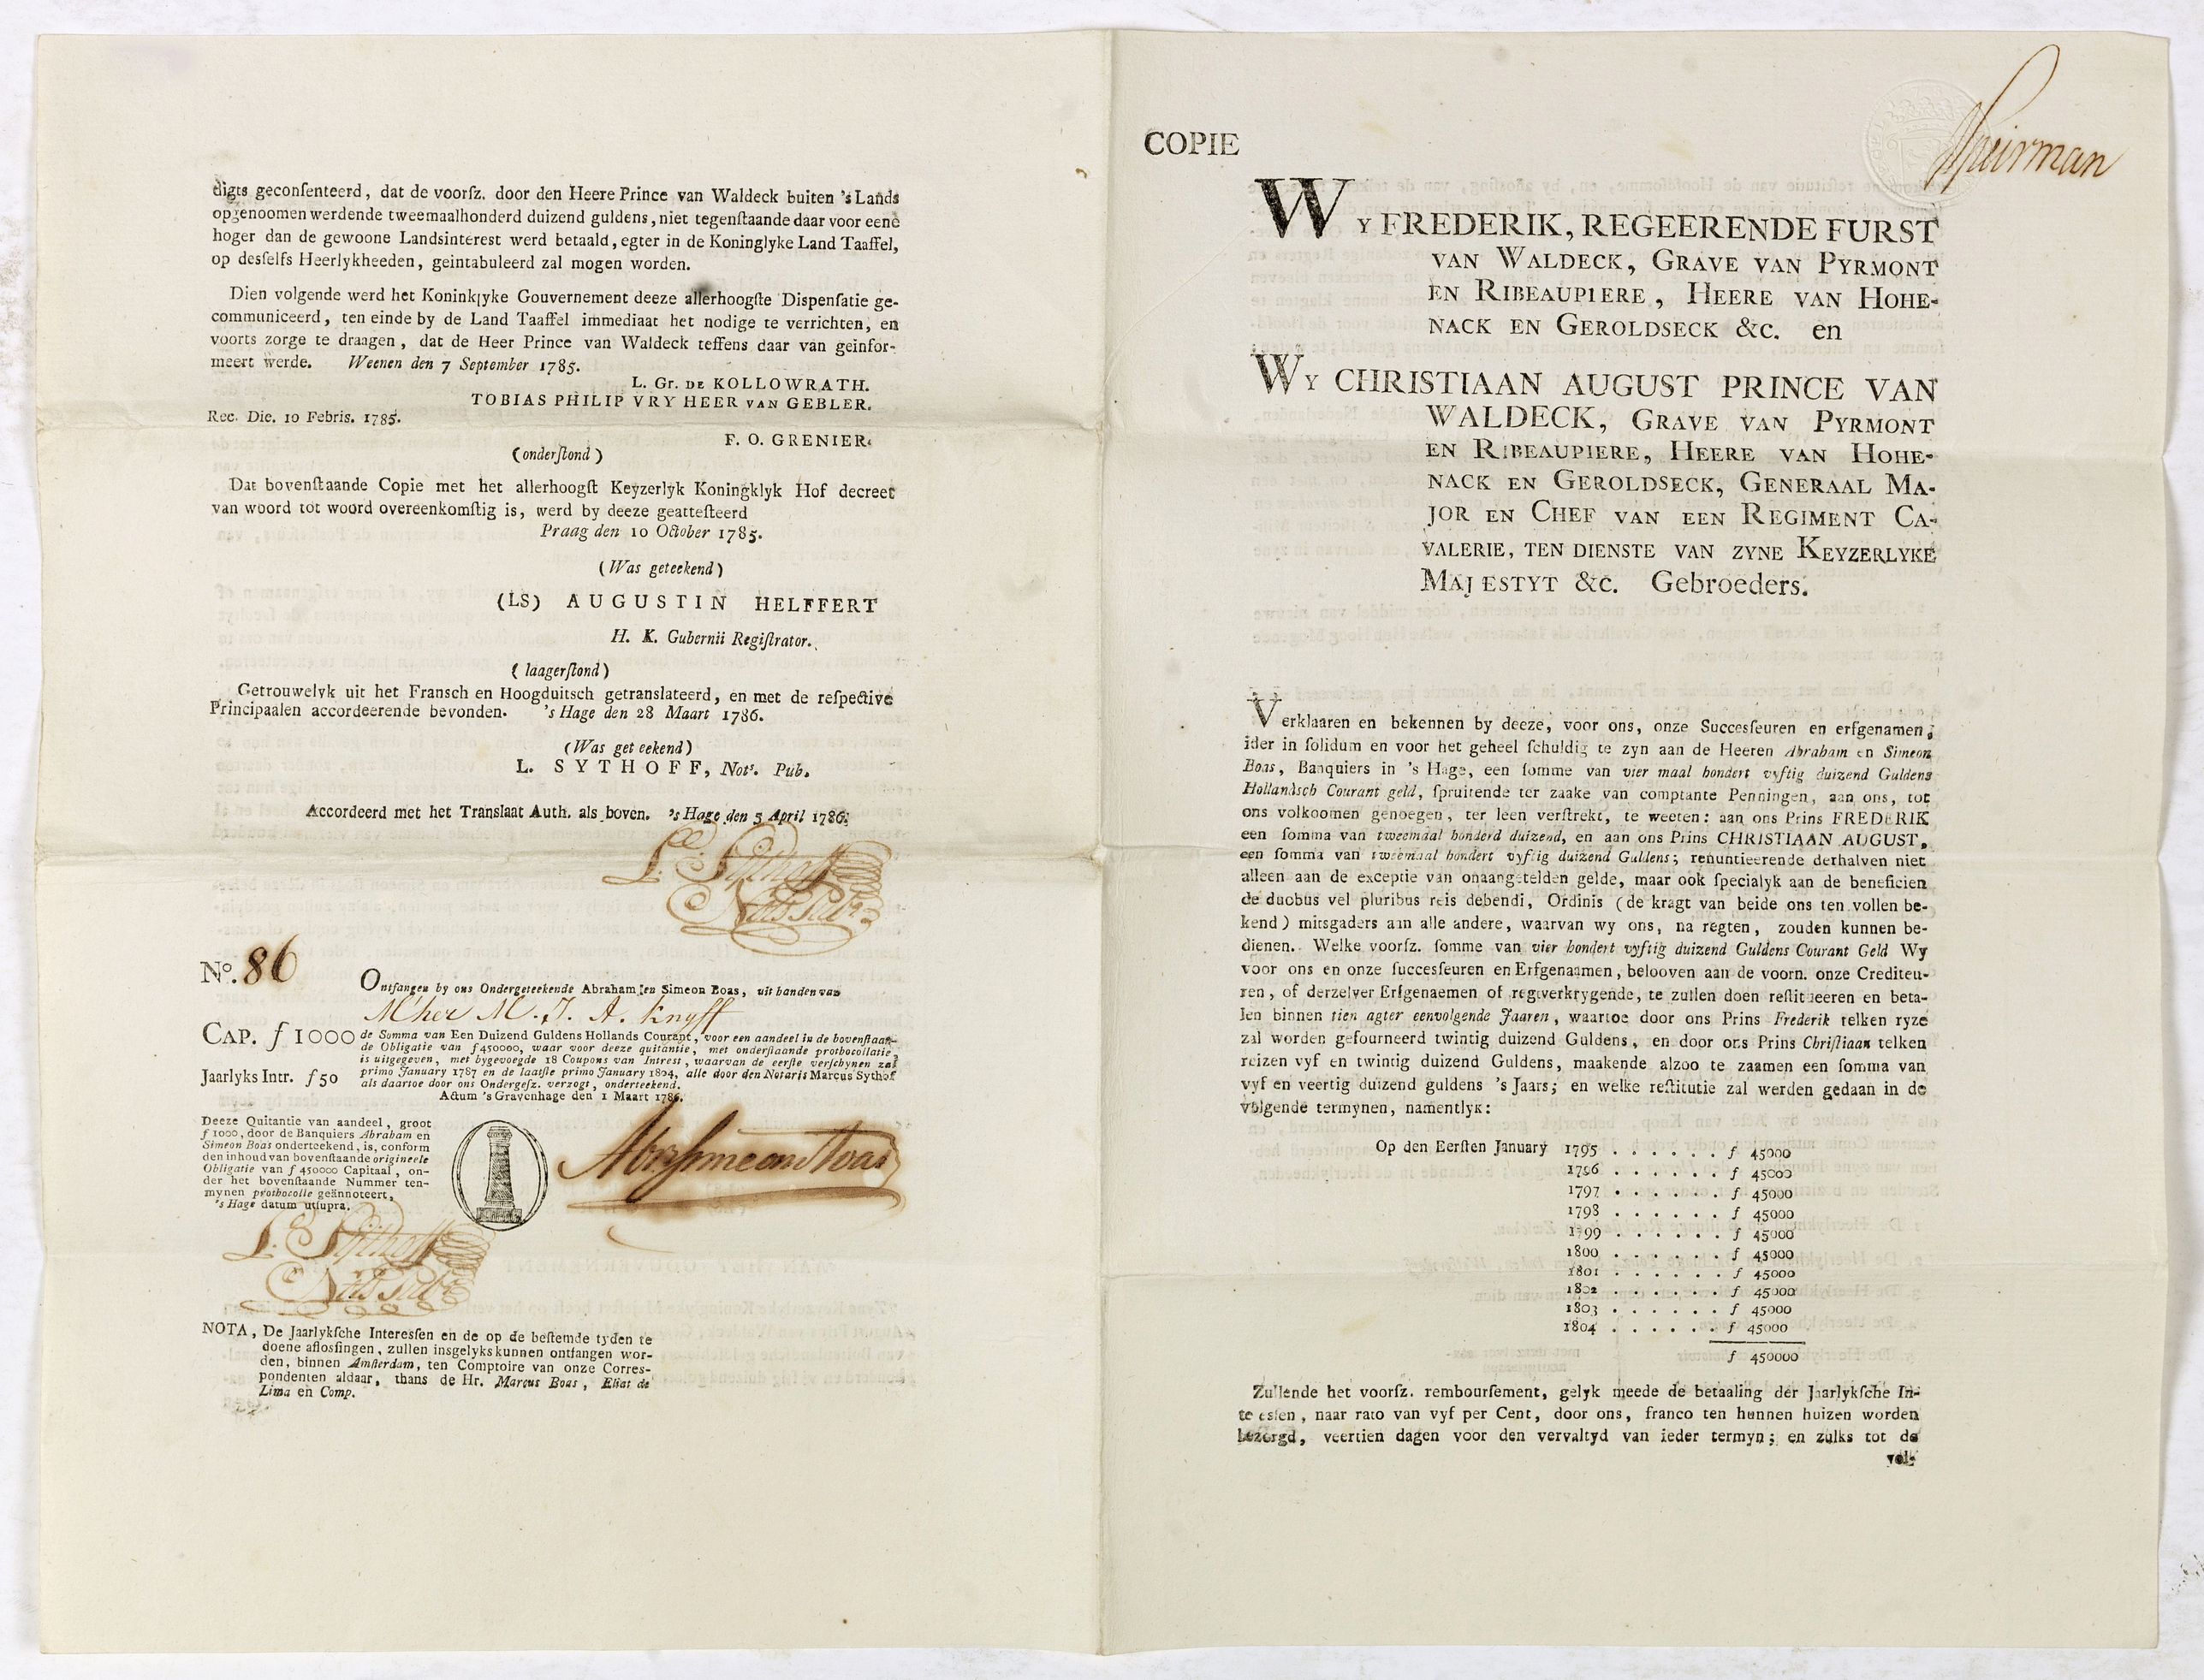 digts geconſenteerd, dat de voorſz. door den Heere Prince van Waldeck buiten 's Lands
opgenoomen werdende tweemaalhonderd duizend guldens, niet tegenſtaande daar voor eene
hoger dan de gewoone Landsinterest werd betaald, egter in de Koninglyke Land Taaffel,
op desſelfs Heerlykheeden, geintabuleerd zal mogen worden.
Dien volgende werd het Koninklyke Gouvernement deeze allerhoogſte Dispenſatie ge-
communiceerd, ten einde by de Land Taaffel immediaat het nodige te verrichten, en
voorts zorge te draagen, dat de Heer Prince van Waldeck teffens daar van geinfor-
meert werde. Weenen den 7 September 1785.
L. Gr. DE KOLLOWRATH.
TOBIAS PHILIP VRY HEER VAN GEBLER.
Rec. Die. 10 Febris. 1785.
F. O. GRENIER.
(onderſtond)
Dat bovenſtaande Copie met het allerhoogſt Keyzerlyk Koningklyk Hof decreet
van woord tot woord overeenkomſtig is, werd by deeze geatteſteerd
Praag den 10 October 1785.
(Was geteekend)
(LS) AUGUSTIN HELFFERT
H. K. Gubernii Regiſtrator.
(laagerſtond)
Getrouwelyk uit het Fransch en Hoogduitsch getranslateerd, en met de reſpective
Principaalen accordeerende bevonden. 's Hage den 28 Maart 1786.
(Was get eekend)
L. SYTHOFF, Nots. Pub.
Accordeerd met het Translaat Auth. als boven. 's Hage den 5 April 1786.
L. Sythoff
Nots Pub.
No. 86
Ontfangen by ons Ondergeteekende Abraham en Simeon Boas, uit handen van
Mher M. J. A. Knyff
CAP. ƒ 1000 de Somma van Een Duizend Guldens Hollands Courant, voor een aandeel in de bovenſtaan-
de Obligatie van ƒ450000, waar voor deeze quitantie, met onderſtaande prothocollatie,
is uitgegeven, met bygevoegde 18 Coupons van Intrest, waarvan de eerſte verſchynen zal
Jaarlyks Intr. ƒ50 primo January 1787 en de laatſte primo January 1804, alle door den Notaris Marcus Sythof
als daartoe door ons Ondergeſz. verzogt, onderteekend.
Actum 's Gravenhage den 1 Maart 1786.
Deeze Quitantie van aandeel, groot
ƒ 1000, door de Banquiers Abraham en
Simeon Boas onderteekend, is, conform
den inhoud van bovenſtaande origineele
Obligatie van ƒ 450000 Capitaal, on-
der het bovenſtaande Nummer ten-
mynen prothocolle geännoteert,
's Hage datum utſupra.
Abr Simeon Boas
L. Sythoff
Nots Pub.
NOTA, De Jaarlykſche Interesſen en de op de beſtemde tyden te
doene aflosſingen, zullen insgelyks kunnen ontfangen wor-
den, binnen Amſterdam, ten Comptoire van onze Corres-
pondenten aldaar, thans de Hr. Marcus Boas, Elias de
Lima en Comp.
COPIE
WY FREDERIK, REGEERENDE FURST
VAN WALDECK, GRAVE VAN PYRMONT
EN RIBEAUPIERE, HEERE VAN HOHE-
NACK EN GEROLDSECK &c. en
WY CHRISTIAAN AUGUST PRINCE VAN
WALDECK, GRAVE VAN PYRMONT
EN RIBEAUPIERE, HEERE VAN HOHE-
NACK EN GEROLDSECK, GENERAAL MA-
JOR EN CHEF VAN EEN REGIMENT CA-
VALERIE, TEN DIENSTE VAN ZYNE KEYZERLYKE
MAJESTYT &c. Gebroeders.
Verklaaren en bekennen by deeze, voor ons, onze Succesſeuren en erfgenamen,
ider in ſolidum en voor het geheel ſchuldig te zyn aan de Heeren Abraham en Simeon
Boas, Banquiers in 's Hage, een ſomme van vier maal hondert vyftig duizend Guldens
Hollandsch Courant geld, ſpruitende ter zaake van comptante Penningen, aan ons, tot
ons volkoomen genoegen, ter leen verſtrekt, te weeten: aan ons Prins FREDERIK
een ſomma van tweemaal honderd duizend, en aan ons Prins CHRISTIAAN AUGUST,
een ſomma van tweemaal hondert vyftig duizend Guldens; renuntieerende derhalven niet
alleen aan de exceptie van onaangetelden gelde, maar ook ſpecialyk aan de beneficien
de duobus vel pluribus reis debendi, Ordinis (de kragt van beide ons ten vollen be-
kend) mitsgaders aan alle andere, waarvan wy ons, na regten, zouden kunnen be-
dienen. Welke voorſz. ſomme van vier hondert vyftig duizend Guldens Courant Geld Wy
voor ons en onze ſuccesſeuren en Erfgenaamen, belooven aan de voorn. onze Crediteu-
ren, of derzelver Erfgenaemen of regtverkrygende, te zullen doen reſtitueeren en beta-
len binnen tien agter eenvolgende Jaaren, waartoe door ons Prins Frederik telken ryze
zal worden gefourneerd twintig duizend Guldens, en door ons Prins Chriſtiaan telken
reizen vyf en twintig duizend Guldens, maakende alzoo te zaamen een ſomma van
vyf en veertig duizend guldens 's Jaars; en welke reſtitutie zal werden gedaan in de
volgende termynen, namentlyk:
Op den Eerſten January 1795 . . . . . . ƒ 45000
1796 . . . . . . ƒ 45000
1797 . . . . . . ƒ 45000
1798 . . . . . . ƒ 45000
1799 . . . . . . ƒ 45000
1800 . . . . . . ƒ 45000
1801 . . . . . . ƒ 45000
1802 . . . . . . ƒ 45000
1803 . . . . . . ƒ 45000
1804 . . . . . . ƒ 45000
ƒ 450000
Zullende het voorſz. rembourſement, gelyk meede de betaaling der Jaarlykſche In-
teresſen, naar rato van vyf per Cent, door ons, franco ten hunnen huizen worden
bezorgd, veertien dagen voor den vervaltyd van ieder termyn; en zulks tot de
vol-